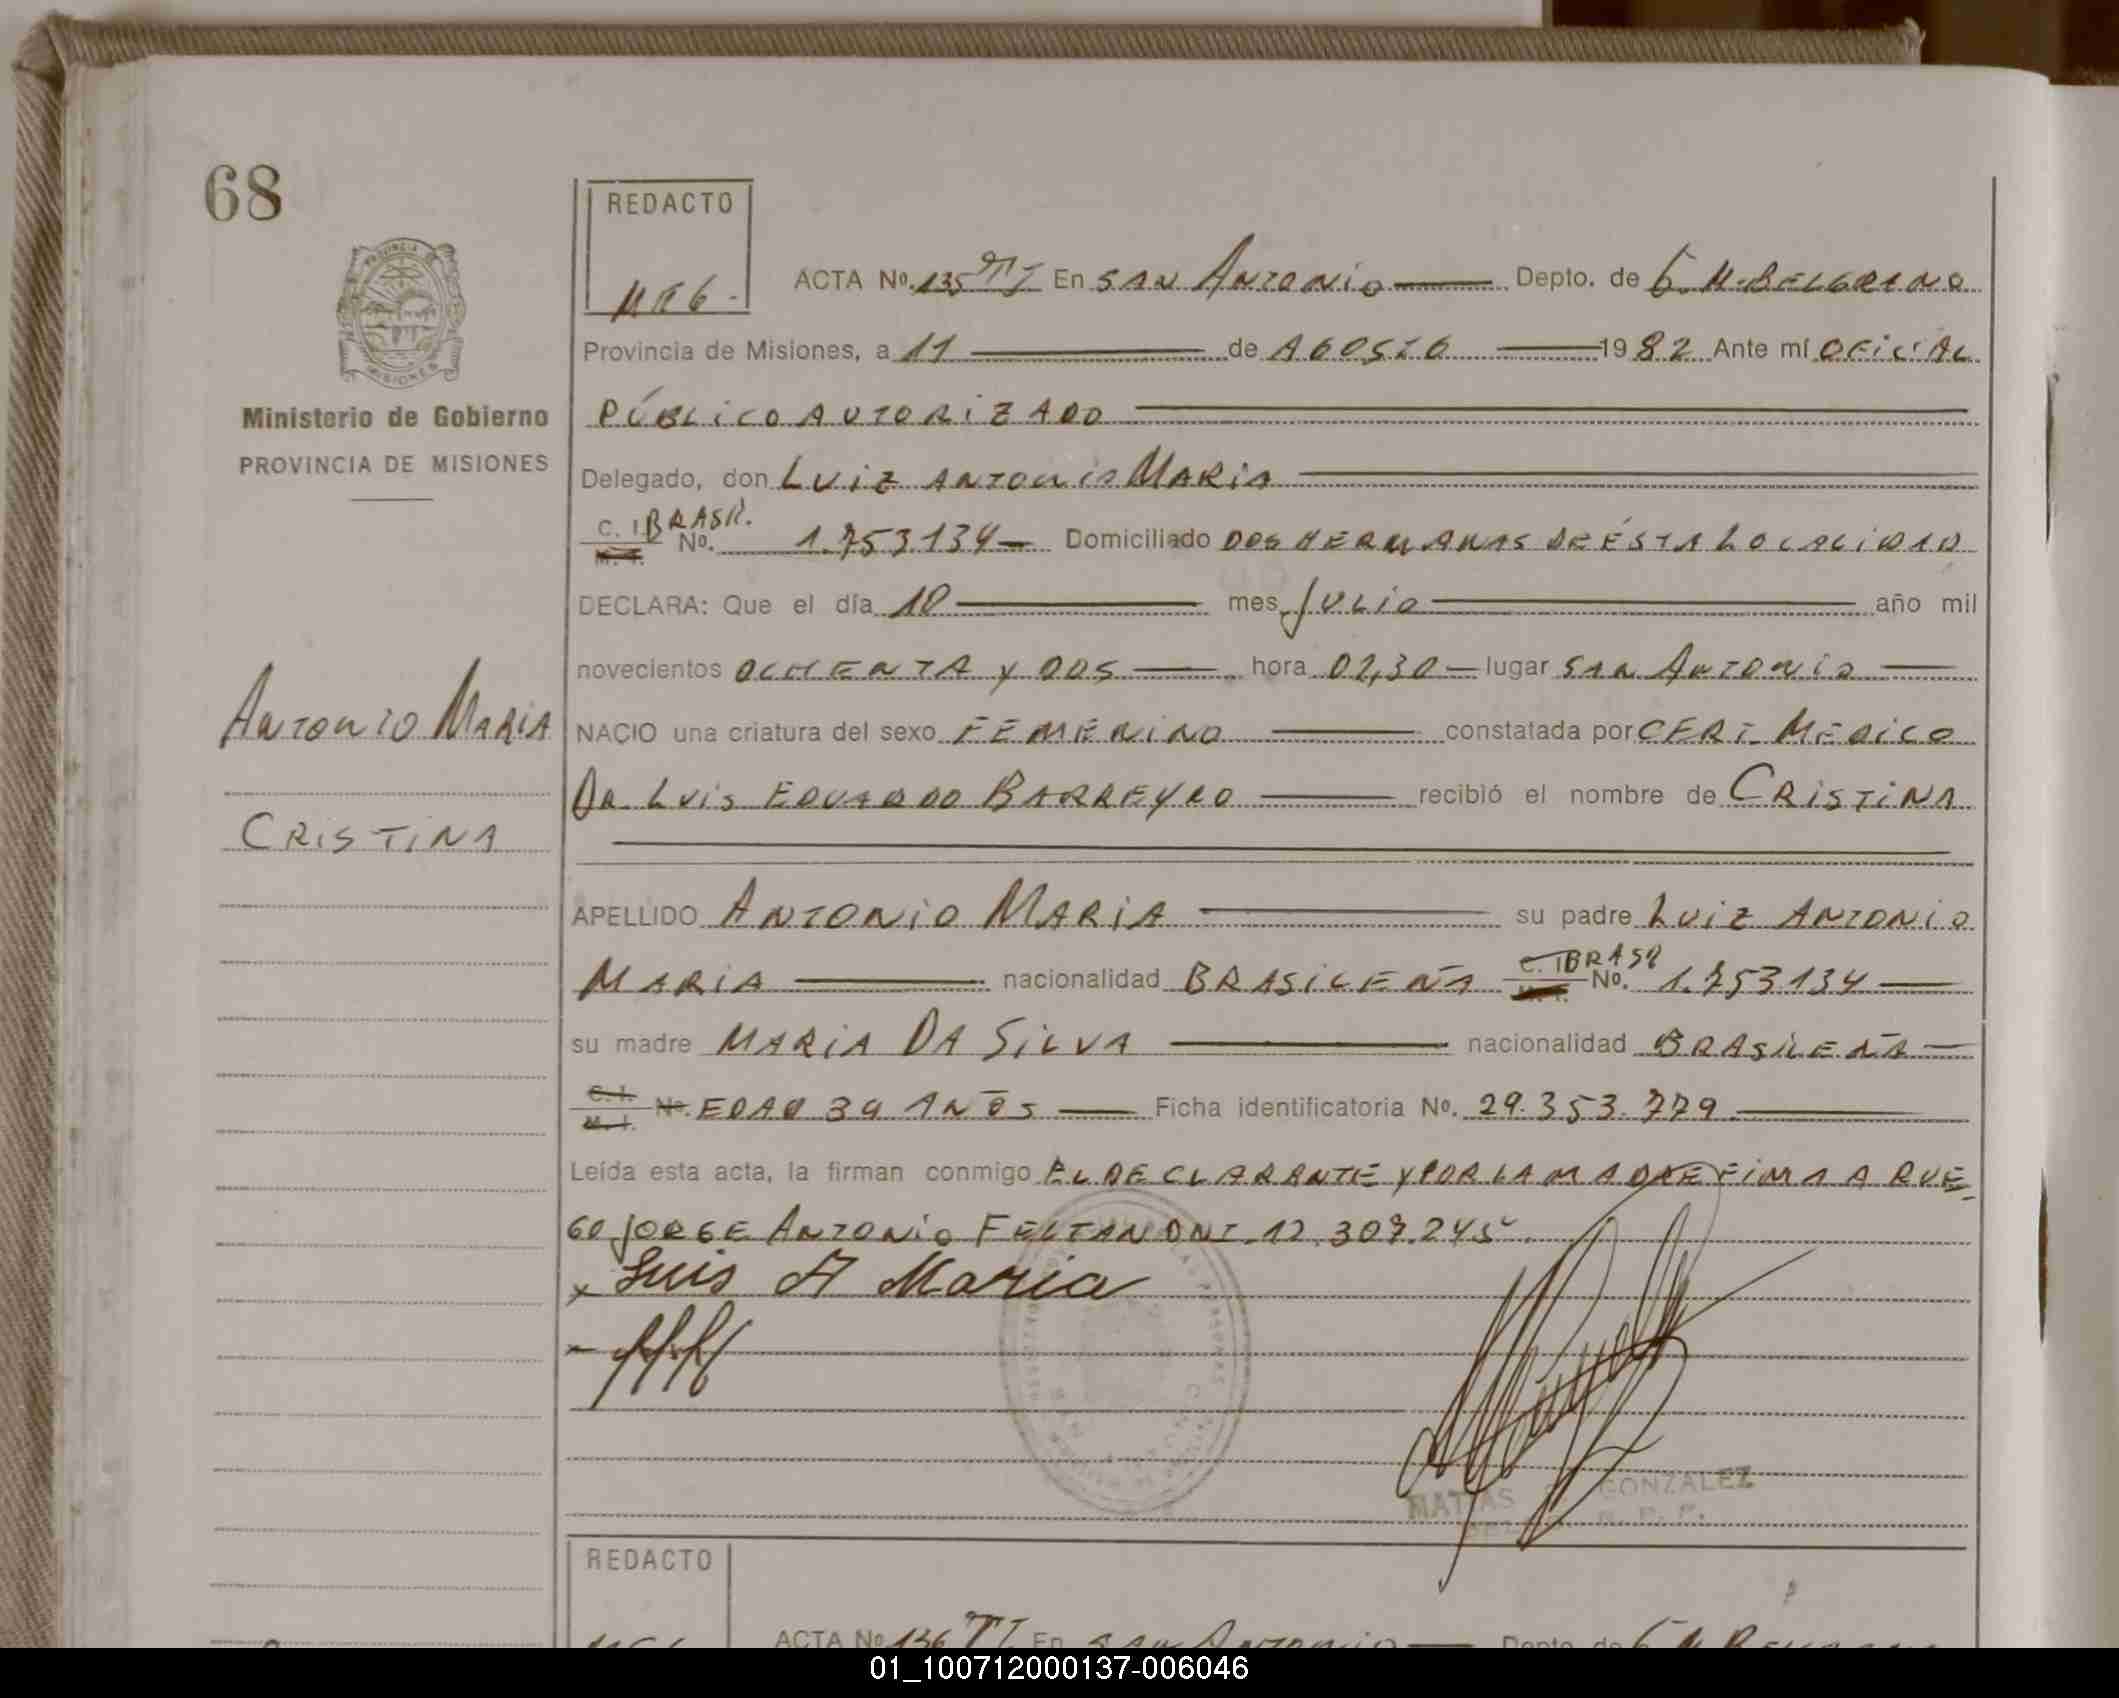 68
REDACTO
ACTA No. 135 TI En SAN ANTONIO Depto. de G. M. BELGRANO
Provincia de Misiones, a 11 de AGOSTO 1982 Ante mí OFICIAL
Ministerio de Gobierno
PÚBLICO AUTORIZADO
PROVINCIA DE MISIONES
Delegado, don LUIZ ANTONIO MARIA
C. I. BRASIL. No. 1.753134 Domiciliado DOS HERMANAS DE ÉSTA LOCALIDAD
M. I.
DECLARA: Que el día 10 mes JULIO año mil
novecientos OCHENTA Y DOS hora 02,30 lugar SAN ANTONIO
ANTONIO MARIA
NACIO una criatura del sexo FEMENINO constatada por CERT. MEDICO
DR. LUIS EDUARDO BARREYRO recibió el nombre de CRISTINA
CRISTINA
APELLIDO ANTONIO MARIA su padre LUIZ ANTONIO
MARIA nacionalidad BRASILEÑA C. I. BRASIL No. 1.753134
su madre MARIA DA SILVA nacionalidad BRASILEÑA
C. I.
M. I. No. EDAD 39 AÑOS Ficha identificatoria No. 29.353.779
Leída esta acta, la firman conmigo EL DECLARANTE Y POR LA MADRE FIMA A RUE-
GO JORGE ANTONIO FELTAN DNI. 12.307.245.
x Luis A Maria
MATIAS GONZALEZ
R. P. P.
REDACTO
ACTA No 136 TI En SAN ANTONIO Depto. de G. M. BELGRANO
01_100712000137-006046